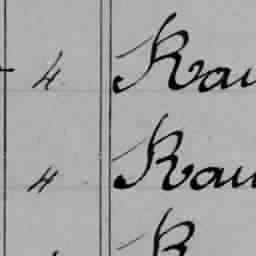 4 Kau
4 Kau